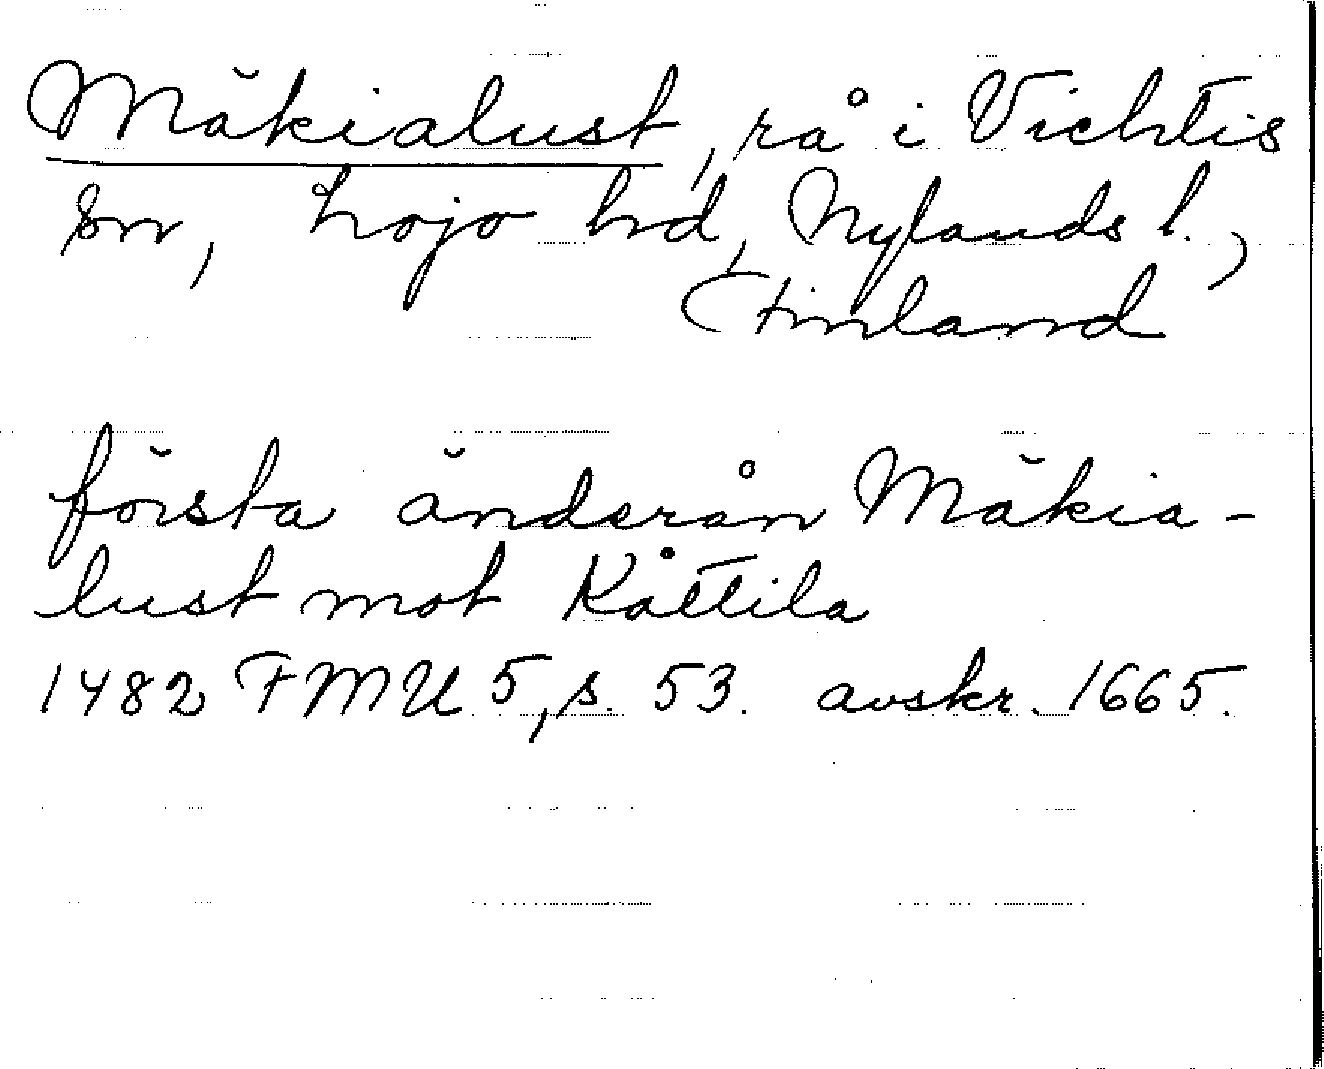 Mäkialust, rå i Vichtis
sn, Lojo hd, Nylands l.,
Finland
första änderån Mäkia-
lust mot Kåttila
1482 FMU 5, s. 53. avskr. 1665.